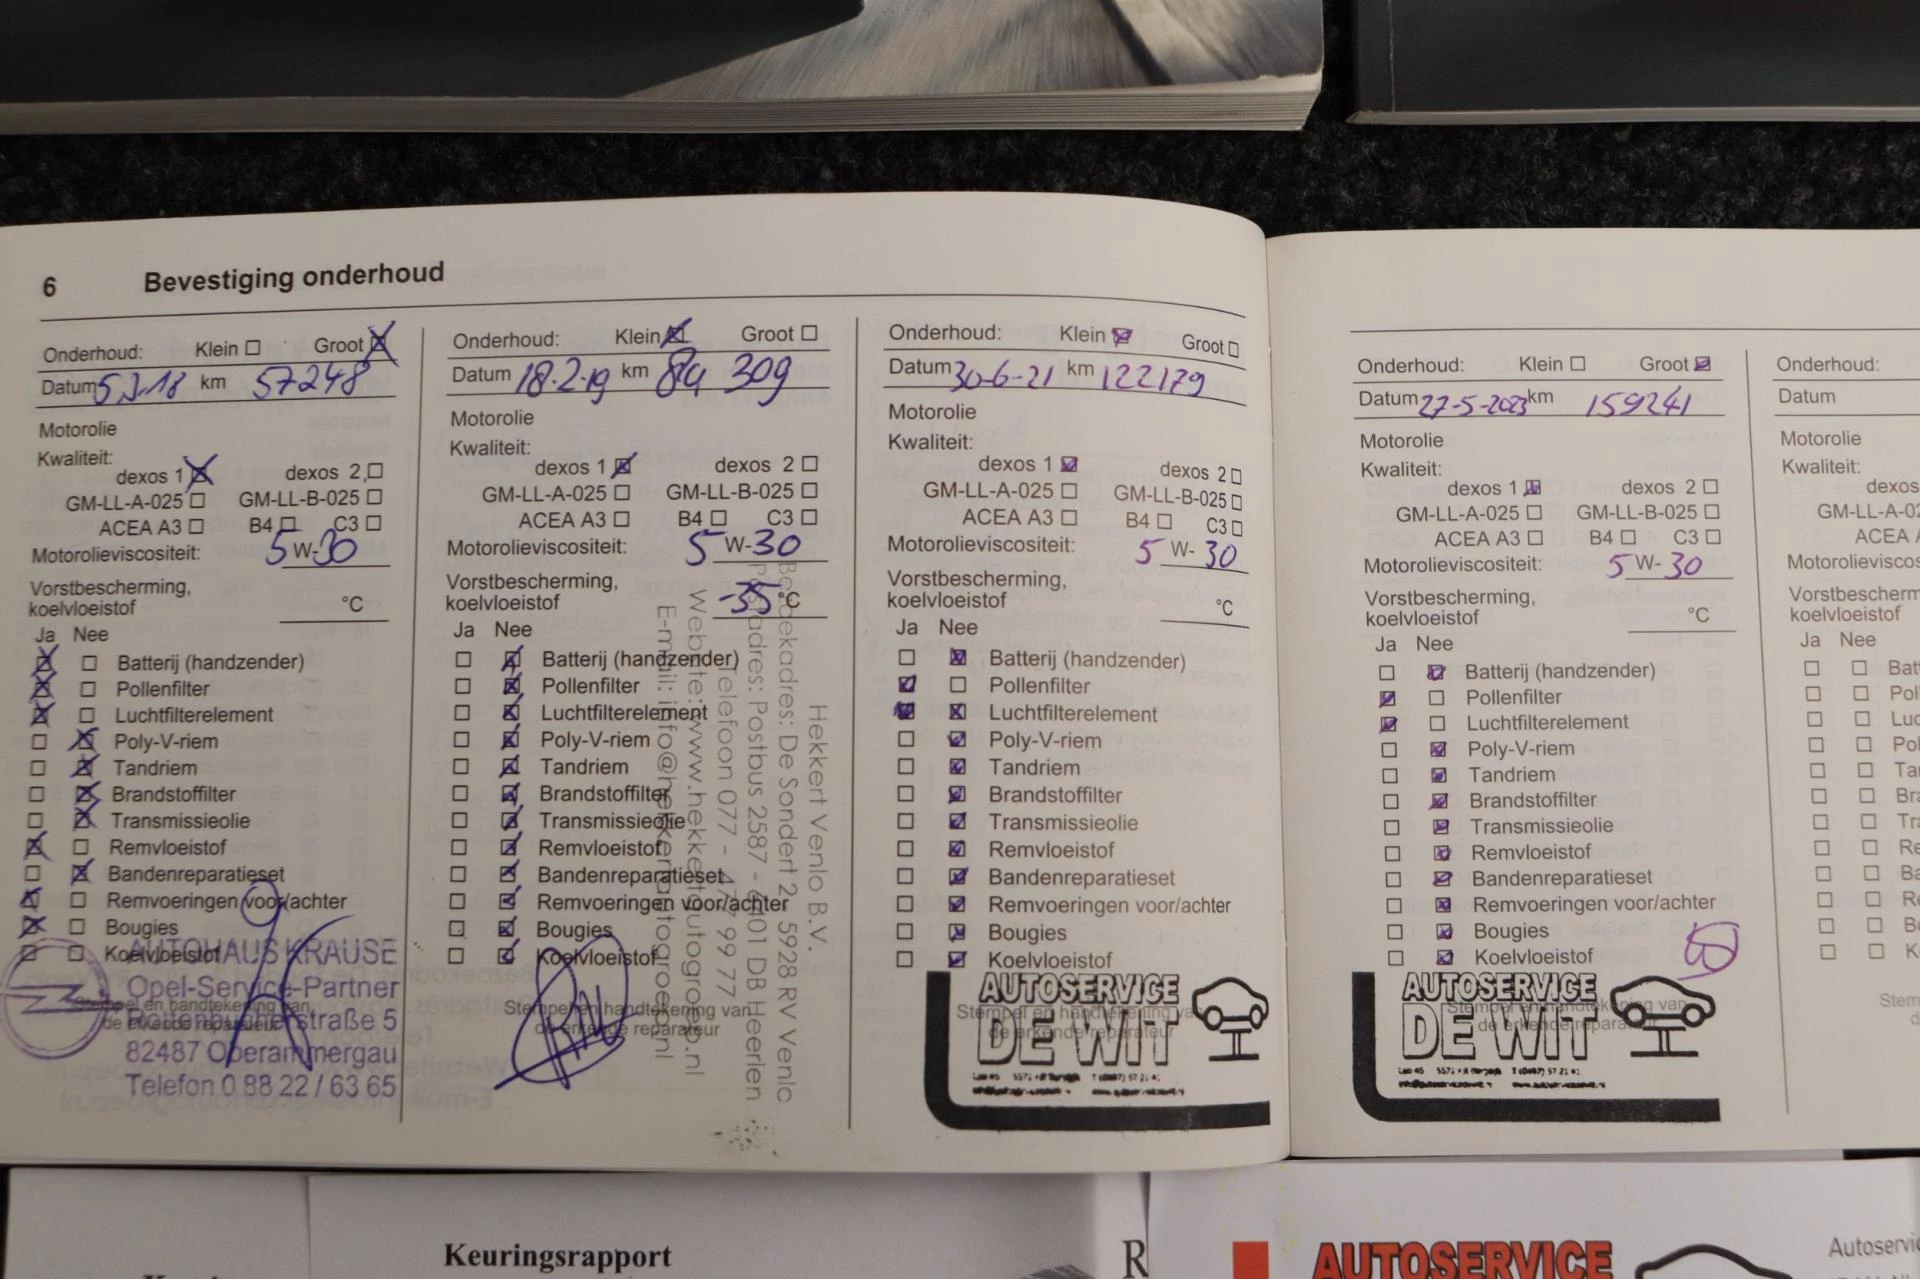 6 Bevestiging onderhoud
Onderhoud: Klein Groot
Datum km 57248
Motorolie
Kwaliteit:
dexos 1 dexos 2
GM-LL-A-025 GM-LL-B-025
ACEA A3 B4 C3
Motorolieviscositeit: 5 W-30
Vorstbescherming,
koelvloeistof °C
Ja Nee
Batterij (handzender)
Pollenfilter
Luchtfilterelement
Poly-V-riem
Tandriem
Brandstoffilter
Transmissieolie
Remvloeistof
Bandenreparatieset
Remvoeringen voor/achter
Bougies
Koelvloeistof
Stempel en handtekening van
de erkende reparateur
AUTOHAUS KRAUSE
Opel-Service-Partner
straße 5
82487 Oberammergau
Telefon 0 88 22 / 63 65
Onderhoud: Klein Groot
Datum 18-2-19 km 89 309
Motorolie
Kwaliteit:
dexos 1 dexos 2
GM-LL-A-025 GM-LL-B-025
ACEA A3 B4 C3
Motorolieviscositeit: 5 W-30
Vorstbescherming,
koelvloeistof -35 °C
Ja Nee
Batterij (handzender)
Pollenfilter
Luchtfilterelement
Poly-V-riem
Tandriem
Brandstoffilter
Transmissieolie
Remvloeistof
Bandenreparatieset
Remvoeringen voor/achter
Bougies
Koelvloeistof
Stempel en handtekening van
de erkende reparateur
Hekkert Venlo B.V.
Bezoekadres: De Sondert 2 - 5928 RV Venlo
Postadres: Postbus 2587 - 6401 DB Heerlen
Telefoon 077 - 477 99 77
Website: www.hekkertautogroep.nl
E-mail: info@hekkertautogroep.nl
Onderhoud: Klein Groot
Datum 30-6-21 km 122179
Motorolie
Kwaliteit:
dexos 1 dexos 2
GM-LL-A-025 GM-LL-B-025
ACEA A3 B4 C3
Motorolieviscositeit: 5 W-30
Vorstbescherming,
koelvloeistof °C
Ja Nee
Batterij (handzender)
Pollenfilter
Luchtfilterelement
Poly-V-riem
Tandriem
Brandstoffilter
Transmissieolie
Remvloeistof
Bandenreparatieset
Remvoeringen voor/achter
Bougies
Koelvloeistof
Stempel en handtekening van
de erkende reparateur
AUTOSERVICE
DE WIT
Onderhoud: Klein Groot
Datum 27-5-2023 km 159241
Motorolie
Kwaliteit:
dexos 1 dexos 2
GM-LL-A-025 GM-LL-B-025
ACEA A3 B4 C3
Motorolieviscositeit: 5 W-30
Vorstbescherming,
koelvloeistof °C
Ja Nee
Batterij (handzender)
Pollenfilter
Luchtfilterelement
Poly-V-riem
Tandriem
Brandstoffilter
Transmissieolie
Remvloeistof
Bandenreparatieset
Remvoeringen voor/achter
Bougies
Koelvloeistof
Stempel en handtekening van
de erkende reparateur
AUTOSERVICE
DE WIT
Onderhoud:
Datum
Motorolie
Kwaliteit:
dexos
GM-LL-A-02
ACEA A
Motorolieviscos
Vorstbescherm
koelvloeistof
Ja Nee
Batt
Pol
Luc
Pol
Tar
Bra
Tra
Re
Ba
Re
Bo
K
Stem
Keuringsrapport
R
AUTOSERVICE
Autoservic